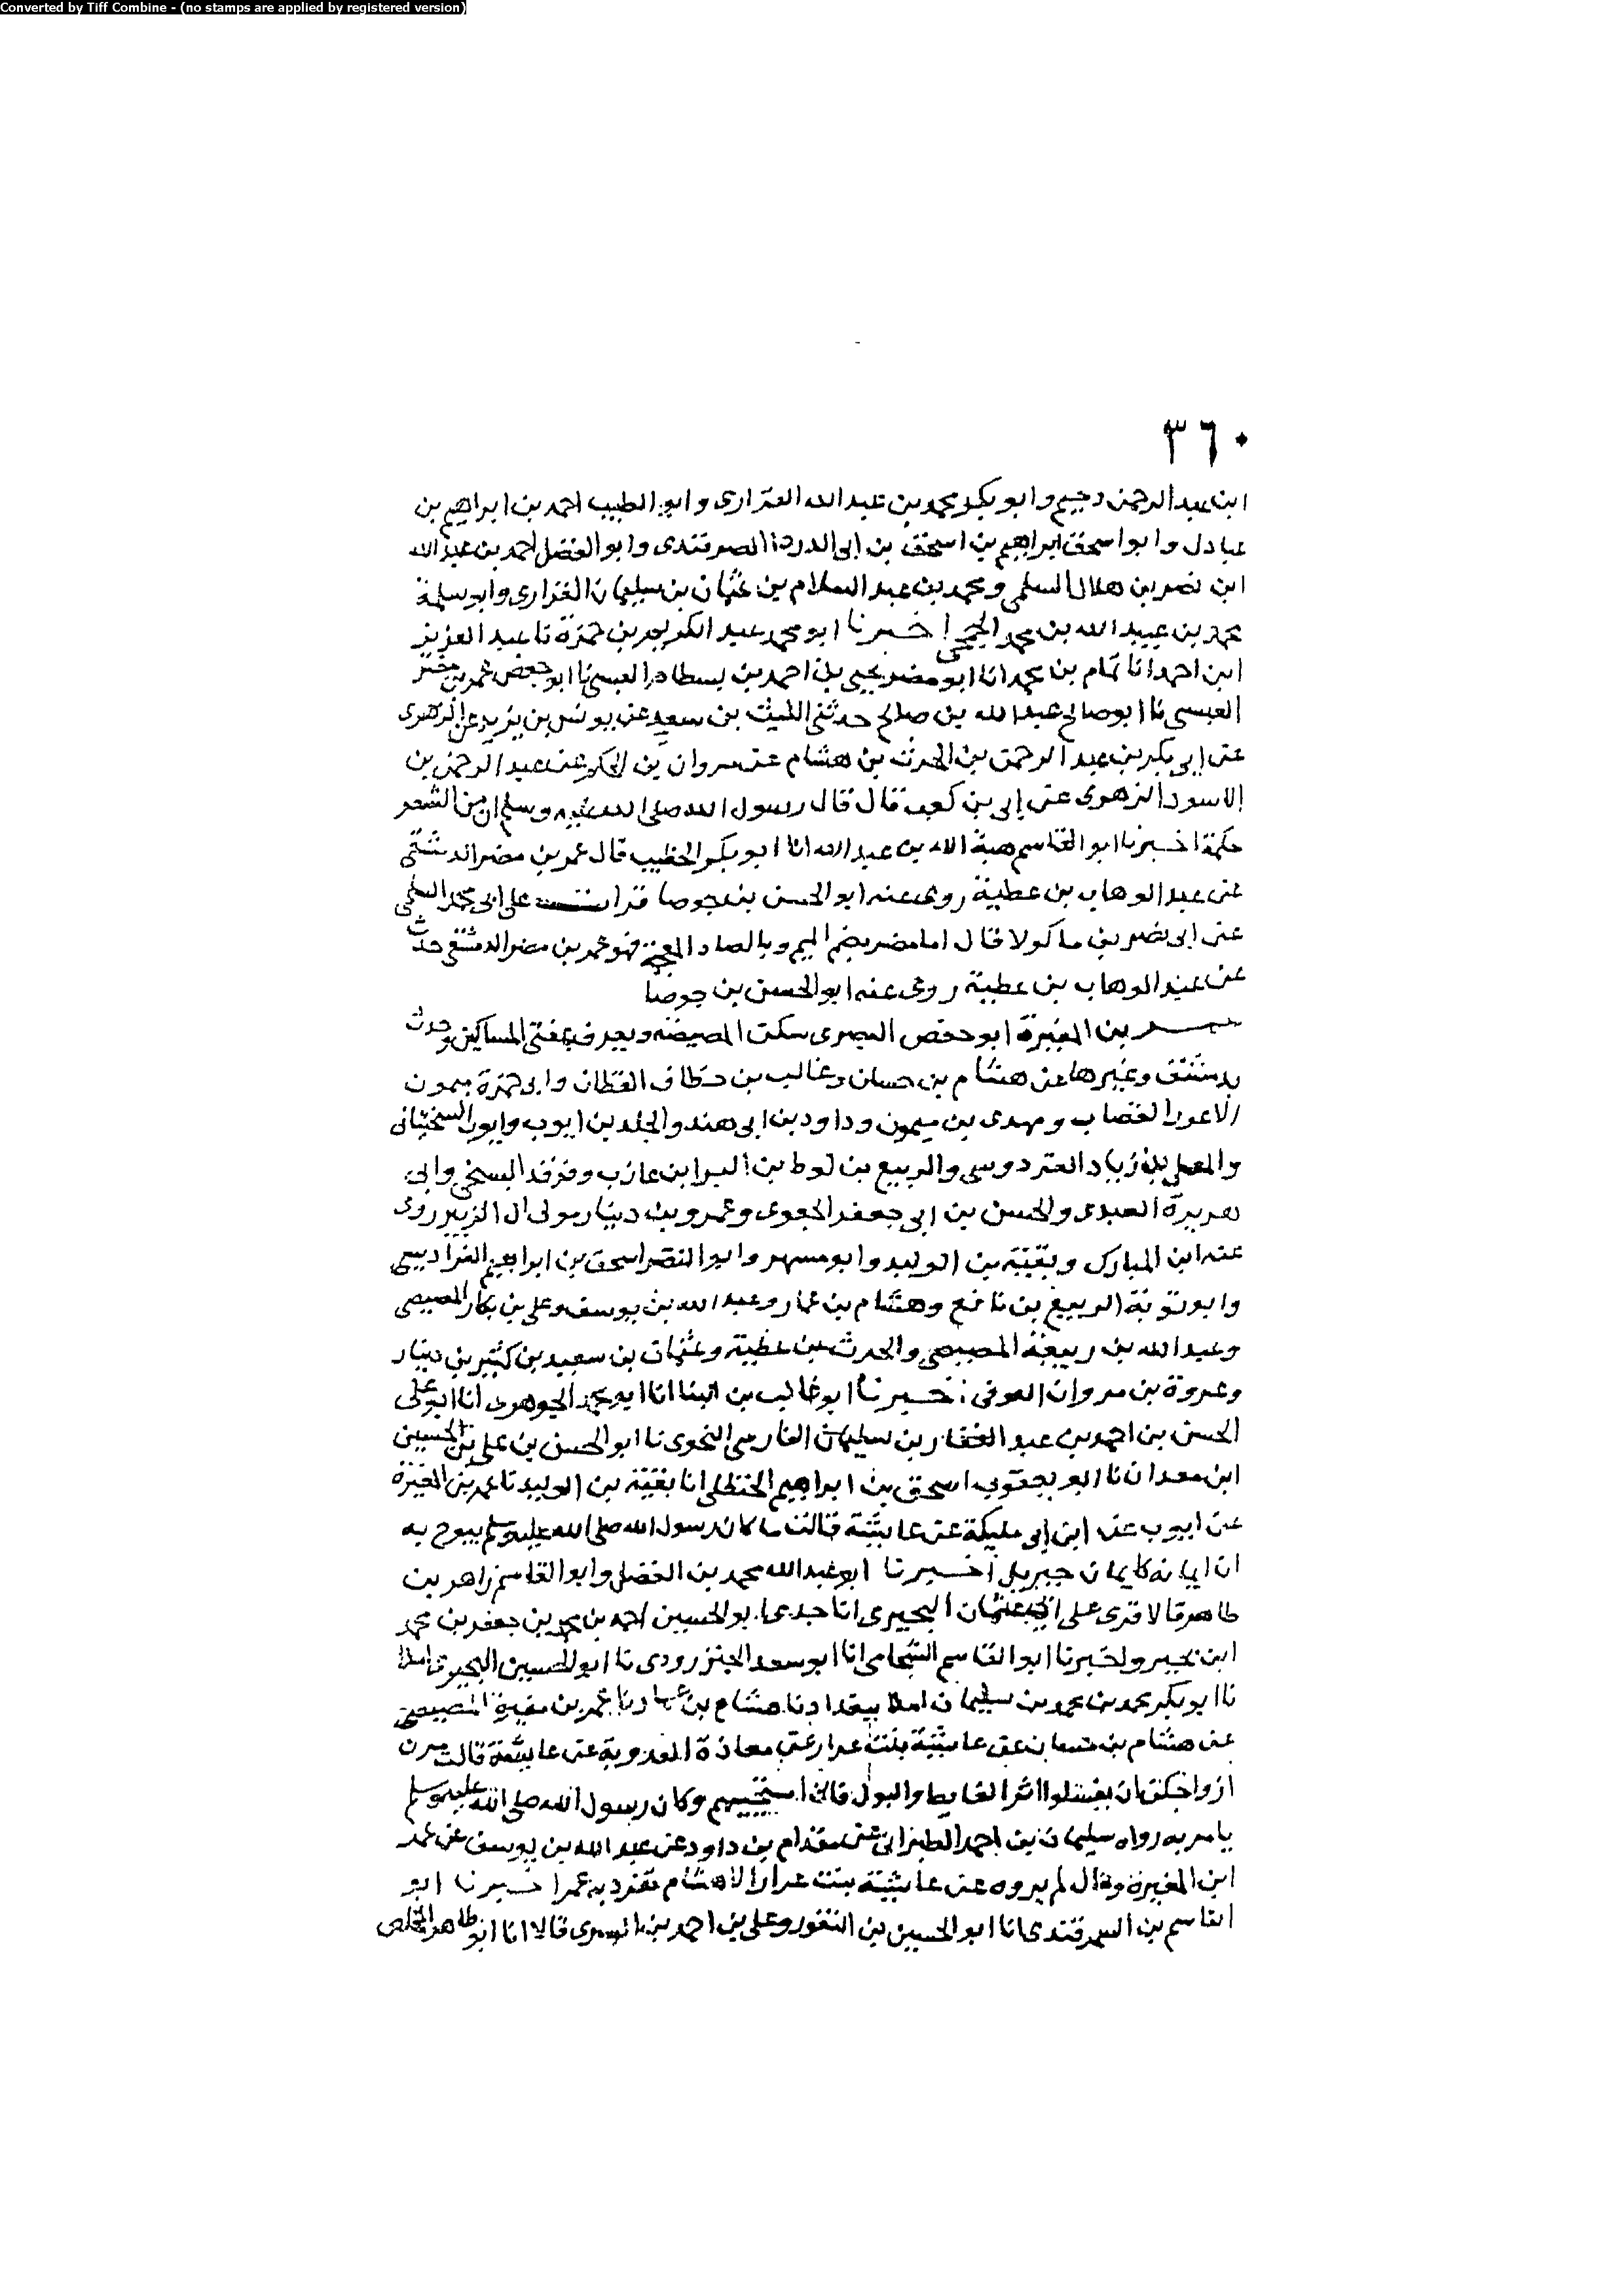 Converted by Tiff Combine - (no stamps are applied by registered version)
٣٦٠
ابن عبد الرحمن دحيم وابو بكر محمد بن عبد الله الفزارى وابو الطيب احمد بن ابراهيم بن
عبادل وابو اسحق ابراهيم بن اسحق بن ابى الدرداء الصرفندى وابو الفضل احمد بن عبد الله
ابن نصر بن هلال السلمى ومحمد بن عبد السلام بن عثمان بن سليمان الفزارى وابو سلمة
محمد بن عبيد الله بن محمد الجمحى اخبرنا ابو محمد عبد الكريم بن حمزة نا عبد العزيز
ابن احمد انا تمام بن محمد انا ابو مضر يحيى بن احمد بن بسطام العبسى نا ابو حفص عمر بن مضر
العبسى نا ابو صالح عبد الله بن صالح حدثنى الليث بن سعد عن يونس بن يزيد عن الزهرى
عن ابى بكر بن عبد الرحمن بن الحرث بن هشام عن مروان بن الحكم عن عبد الرحمن بن
الاسود الزهرى عن ابى بن كعب قال قال رسول الله صلى الله عليه وسلم ان من الشعر
حكمة اخبرنا ابو القاسم هبة الله بن عبد الله انا ابو بكر الخطيب قال عمر بن مضر الدمشقى
عن عبد الوهاب بن عطية روى عنه ابو الحسن بن جوصا قرات على ابى محمد السلمى
عن ابى نصر بن ماكولا قال اما مضر بضم الميم وبالضاد المعجمة فهو عمر بن مضر الدمشقى حدث
عن عبد الوهاب بن عطية روى عنه ابو الحسن بن جوصا
عمر بن المغيرة ابو حفص البصرى سكن المصيصة ويعرف بمفتى المساكين وحدث
بدمشق وغيرها عن هشام بن حسان وغالب بن خطاف القطان وابى حمزة ميمون
الاعور القصاب ومهدى بن ميمون وداود بن ابى هند والجلد بن ايوب وايوب السختيانى
والمعلى بن زياد القردوسى والربيع بن لوط بن البرا بن عازب وفرقد السبخى وابى
هريرة العبدى والحسن بن ابى جعفر الجعفرى وعمرو بن دينار مولى ال الزبير روى
عنه ابن المبارك وبقية بن الوليد وابو مسهر وابو النضر اسحق بن ابراهيم الفراديسى
وابو توبة الربيع بن نافع وهشام بن عمار وعبد الله بن يوسف وعلى بن بكار المصيصى
وعبد الله بن ربيعة المصيصى والحرث بن عطية وعثمان بن سعيد بن كثير بن دينار
وعروة بن مروان العرقى اخبرنا ابو غالب بن البنا انا ابو محمد الجوهرى انا ابو على
الحسن بن احمد بن عبد الغفار بن سليمان الفارسى النحوى نا ابو الحسن بن على بن الحسين
ابن معدان نا ابو يعقوب اسحق بن ابراهيم الحنظلى انا بقية بن الوليد نا عمر بن المغيرة
عن ايوب عن ابن ابى مليكة عن عايشة قالت ما كان رسول الله صلى الله عليه وسلم يبوح به
ان ايمانه كايمان جبريل اخبرنا ابو عبد الله محمد بن الفضل وابو القاسم زاهر بن
طاهر قالا قرى على ابى عثمان البحيرى انا جدى ابو الحسين احمد بن محمد بن جعفر بن محمد
ابن بحير واخبرنا ابو القاسم الشحامى انا ابو سعد الجنزرودى نا ابو الحسين البحيرى املا
نا ابو بكر محمد بن محمد بن سليمان املا ببغداد نا هشام بن عمار نا عمر بن مغيرة المصيصى
عن هشام بن حسان عن عايشة بنت عرار عن معاذة العدوية عن عايشة قالت مرن
ازواجكن ان يغسلوا اثر الغايط والبول فانى استحييهم وكان رسول الله صلى الله عليه وسلم
يامر به رواه سليمان بن احمد الطبرانى عن مقدام بن داود عن عبد الله بن يوسف عن عمر
ابن المغيرة وقال لم يروه عن عايشة بنت عرار الا هشام تفرد به عمر اخبرنا ابو
القاسم بن السمرقندى انا ابو الحسين بن النقور وعلى بن احمد بن البسرى قالا انا ابو طاهر المخلص